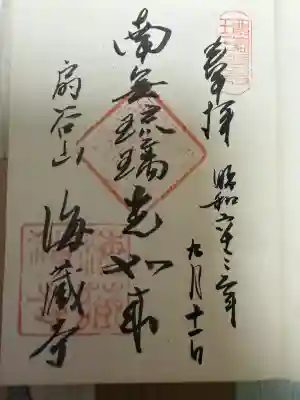 奉拝 昭和六十三年
九月十一日
南無瑠璃光如来
扇谷山 海蔵寺